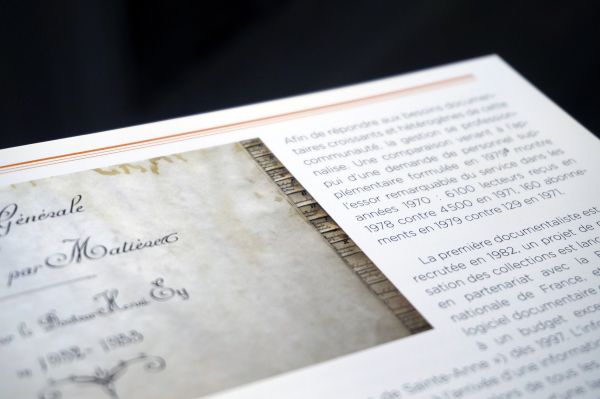 Générale
par Matières
le Docteur Henri Ey
1932-1933
Afin de répondre aux besoins documen-
taires croissants et hétérogènes de cette
communauté, la gestion se profession-
nalise. Une comparaison venant à l'ap-
pui d'une demande de personnel sup-
plémentaire formulée en 1979 montre
l'essor remarquable du service dans les
années 1970 : 6100 lecteurs reçus en
1978 contre 4500 en 1971, 160 abonne-
ments en 1979 contre 129 en 1971.
La première documentaliste est
recrutée en 1982, un projet de
sation des collections est lanc
en partenariat avec la B
nationale de France, et
logiciel documentaire
à un budget exce
de Sainte-Anne ») dès 1997. L'info
l'arrivée d'une information
sions de tous le